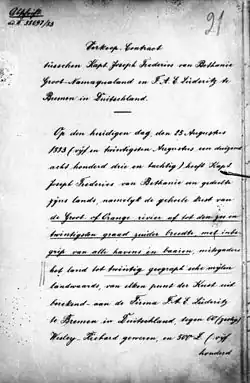 Abschrift
21
Verkoop-Contract
tusschen Kapt Joseph Frederics van Bethanie
Groot-Namaqualand en F. A. E. Lüderitz te
Bremen in Duitschland.
Op den huidigen dag, den 25 Augustus
1883 (vijf en twintigsten Augustus een duizend
acht honderd drie en tachtig) heeft Kapt
Joseph Frederics van Bethanie een gedeelte
zijns lands, namelijk de geheele Kust van
de Groot of Orange rivier af tot den zes en
twintigsten graad zuider breedte met inbe-
grip van alle havens en baaien, mitsgaders
het land tot twintig geograph'sche mijlen
landwaards, van elken punt der Kust uit
berekend aan de Firma F. A. E. Lüderitz
te Bremen in Duitschland, tegen 60 (zestig)
Wesley-Richard geweren, en 500 £ (vijf
honderd